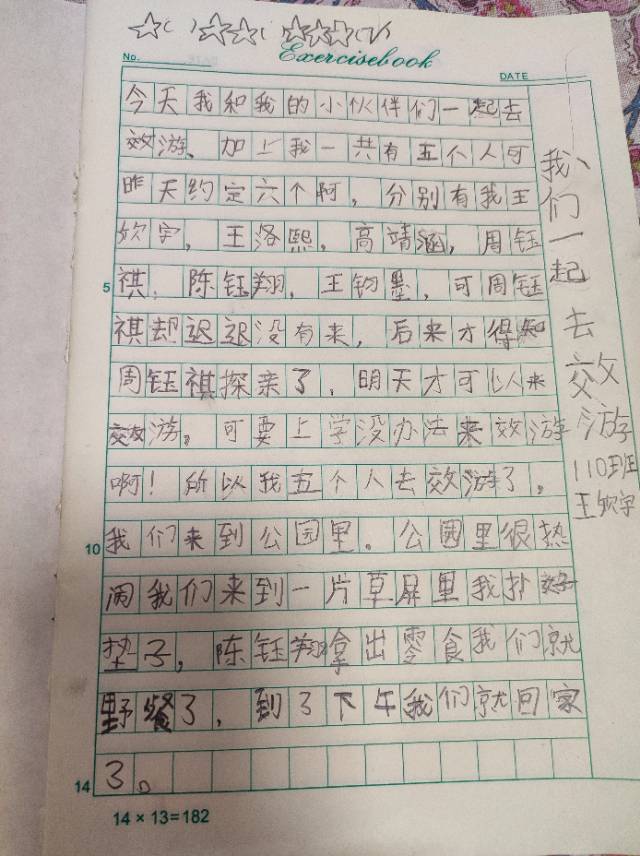 ☆( )☆☆( )☆☆☆(√)
Exercisebook
No.
DATE
今天我和我的小伙伴们一起去
效游、加上我一共有五个人可
昨天约定六个啊，分别有我王
钦字，王洛熙，高靖涵，周钰
祺，陈钰翔，王钧墨，可周钰
祺却迟迟没有来，后来才得知
周钰祺探亲了，明天才可以来
效游。可要上学没办法来效游
啊！所以我五个人去效游了。
我们来到公园里。公园里很热
闹我们来到一片草屏里我扑好
垫子，陈钰翔拿出零食我们就
野餐了，到了下午我们就回家
了。
5
10
14
14×13=182
我们一起去效游
110班
王钦字